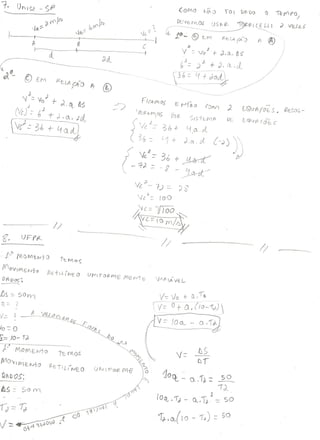 7. UNISC - SP
V0 = 2 m/s
V0 = 6 m/s
V0 = ?
A B C
d
2d
COMO NÃO FOI DADO O TEMPO,
DEVEMOS USAR TORRICELLI 2 VEZES
1º- B EM RELAÇÃO A A
V² = V0² + 2.a.ΔS
6² = 2² + 2.a.d
36 = 4 + 2ad
2º C EM RELAÇÃO A B
V² = V0² + 2.a.ΔS
(Vc)² = 6² + 2.a.2d
Vc² = 36 + 4ad
FICAMOS ENTÃO COM 2 EQUAÇÕES,
SISTEMA DE EQUAÇÕES
Vc² = 36 + 4.a.d
36 = 4 + 2.a.d (-2)
Vc² = 36 + 4ad
-72 = -8 - 4ad
Vc² - 72 = 28
Vc² = 100
Vc = √100
Vc = 10 m/s
8. UFPR
1º MOMENTO TEMOS
MOVIMENTO RETILÍNEO UNIFORMEMENTE VARIÁVEL
DADOS:
ΔS = 50m
a = ?
V = ?
V0 = 0
t = 10 - T2
A VELOCIDADE FINAL DO 1º MOMENTO
V = V0 + a.T1
V = 0 + a.(10-T2)
V = 10a - a.T2
2º MOMENTO TEMOS
MOVIMENTO RETILÍNEO UNIFORME
DADOS:
ΔS = 50m
T2 = T2
V =
V = ΔS
ΔT
10a - a.T2 = 50
T2
10a.T2 - a.T2² = 50
T2.a(10 - T2) = 50